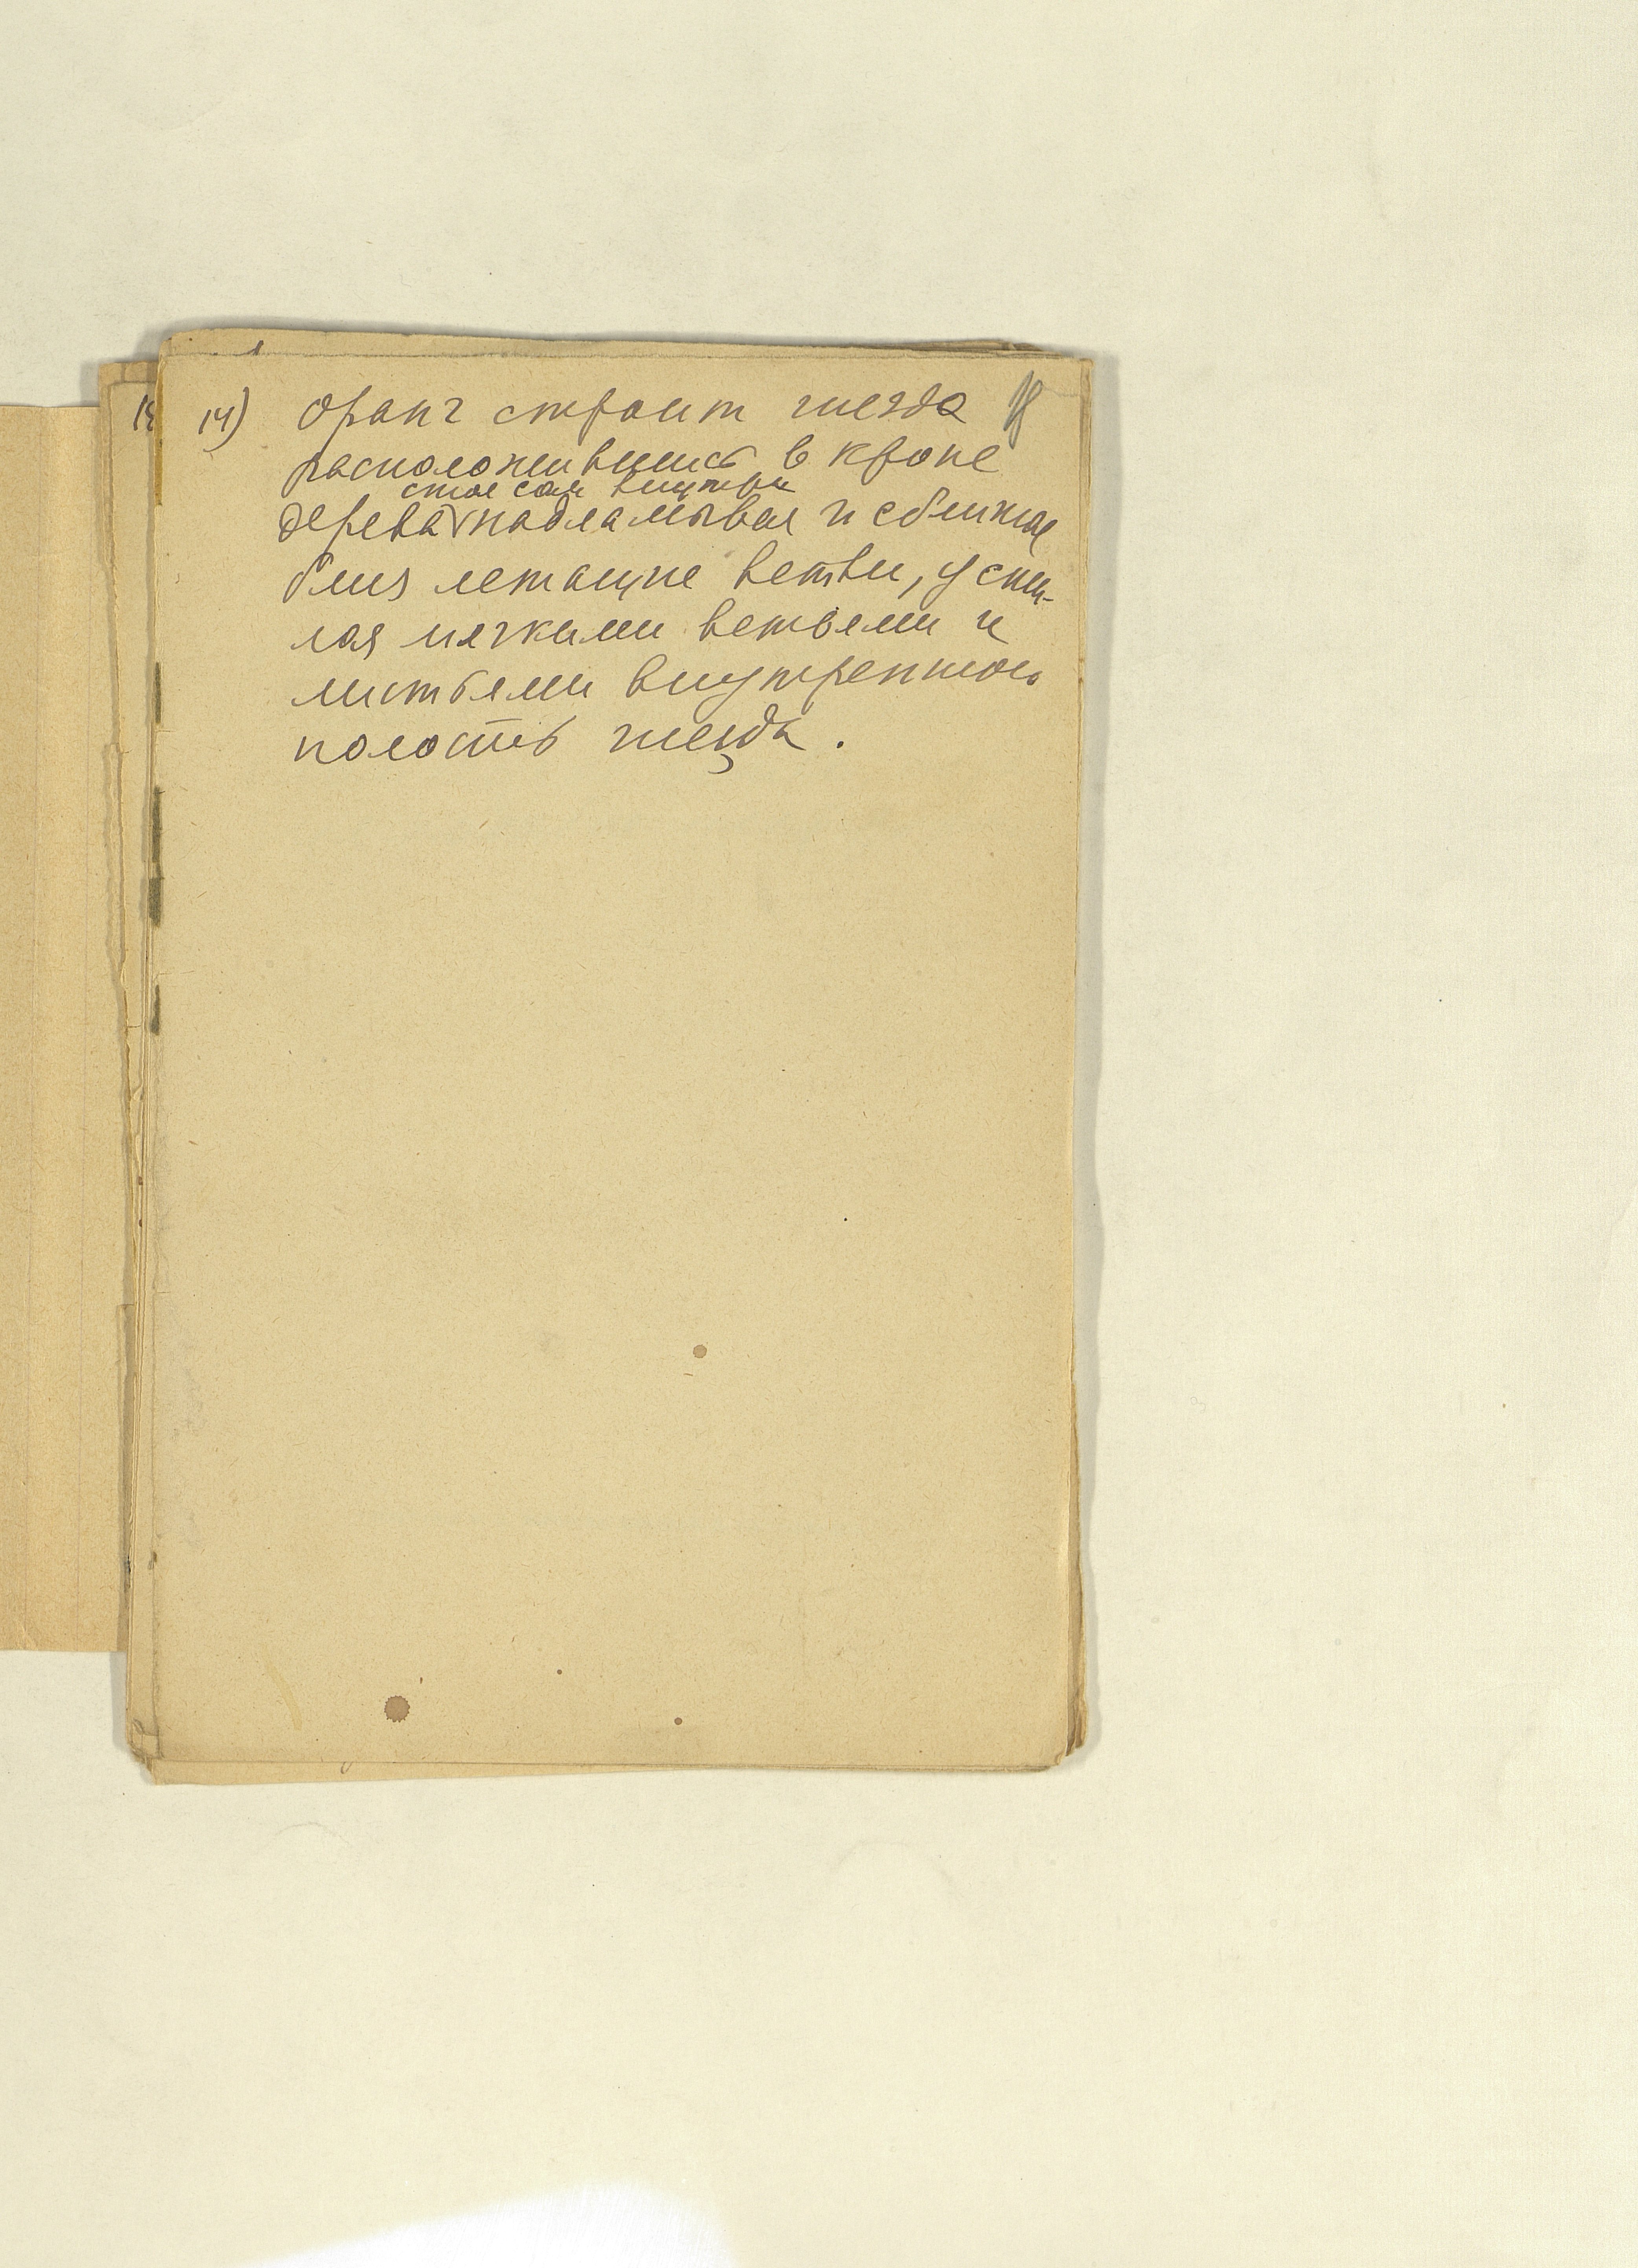 18
14) Оранг строит гнезда
расположившись в кроне
стоя сам внутри
дерева надламывая и сближая
близ лежащие ветви, усти-
лая мягкими ветвями и
листьями внутреннюю
полость гнезда.